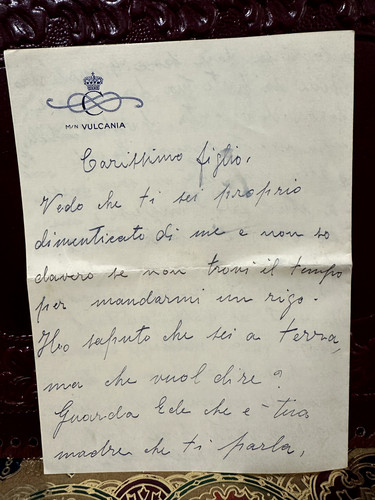 C
M/N VULCANIA
Carissimo figlio,
Vedo che ti sei proprio
dimenticato di me e non so
davero se non trovi il tempo
per mandarmi un rigo.
Ho saputo che sei a terra,
ma che vuol dire?
Guarda Ede che è tua
madre che ti parla,